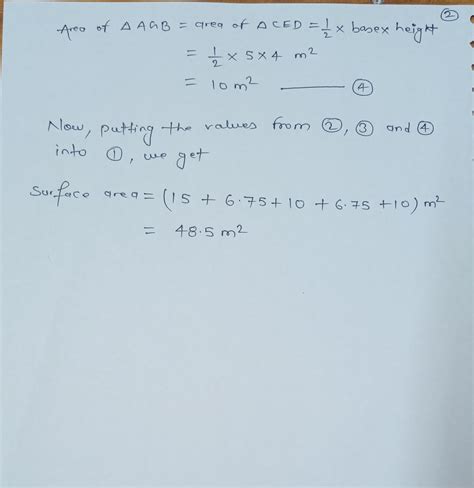 ②
Area of △AGB = area of △CED = 1/2 × base × height
= 1/2 × 5 × 4 m²
= 10 m² ——— ④
Now, putting the values from ②, ③ and ④
into ①, we get
Surface area = (15 + 6.75 + 10 + 6.75 + 10) m²
= 48.5 m²